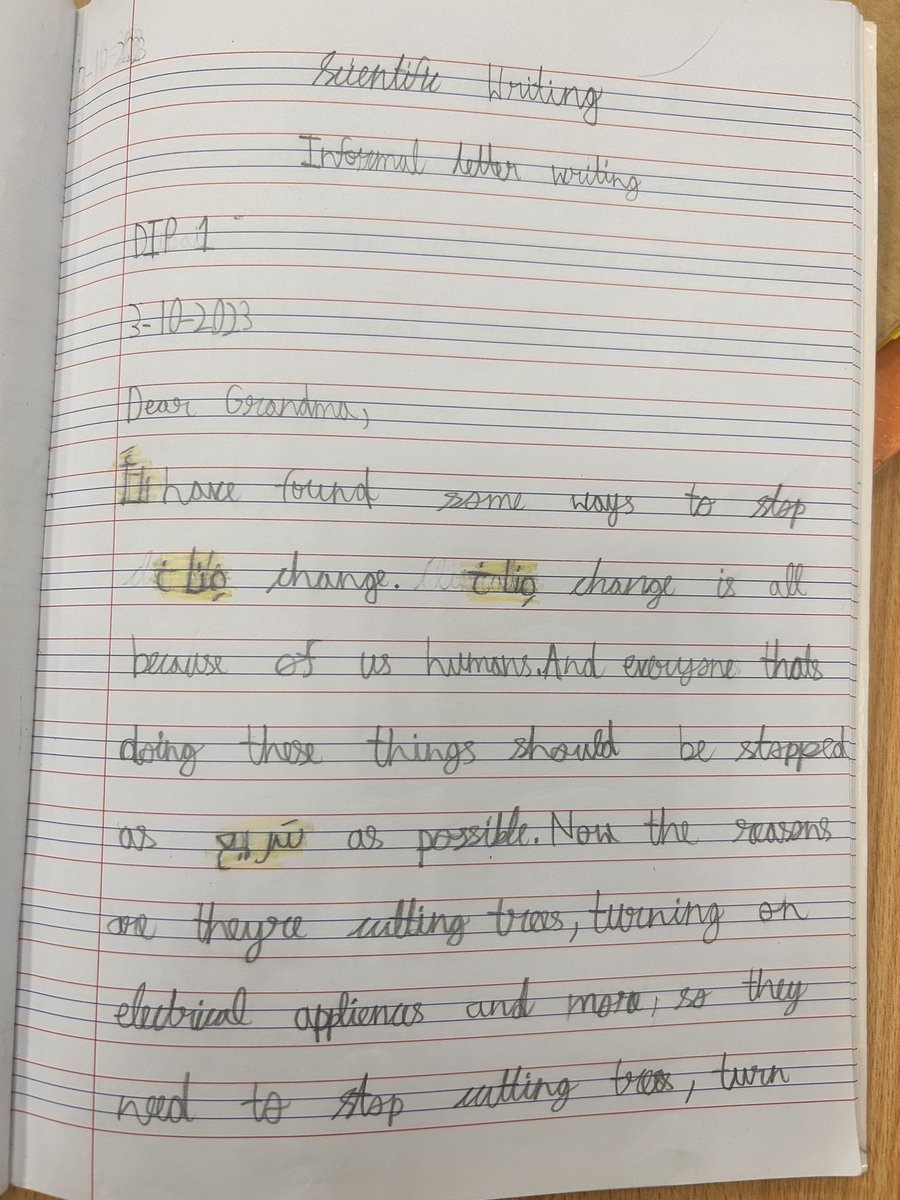 3-10-2023
Scientific Writing
Informal letter writing
DIP 1
3-10-2023
Dear Grandma,
have found some ways to stop
مِناخ change. مِناخ change is all
because of us humans. And everyone thats
doing these things should be stopped
as سَريع as possible. Now the reasons
are theyre cutting trees, turning on
electrical appliences and more, so they
need to stop cutting trees, turn